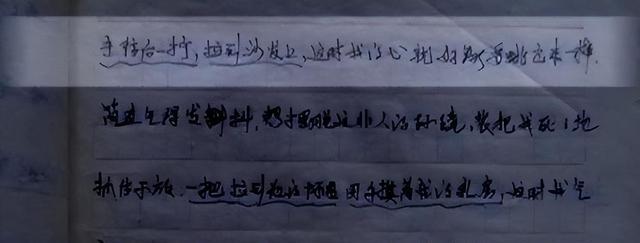 手往后一拧，拉到沙发上，这时我的心就好象要跳出来一样.
简直气得发抖，想摆脱这小人的纠缠，把我死死地
抓住不放.一把拉到他的怀里用手摸着我的乳房，这时我气